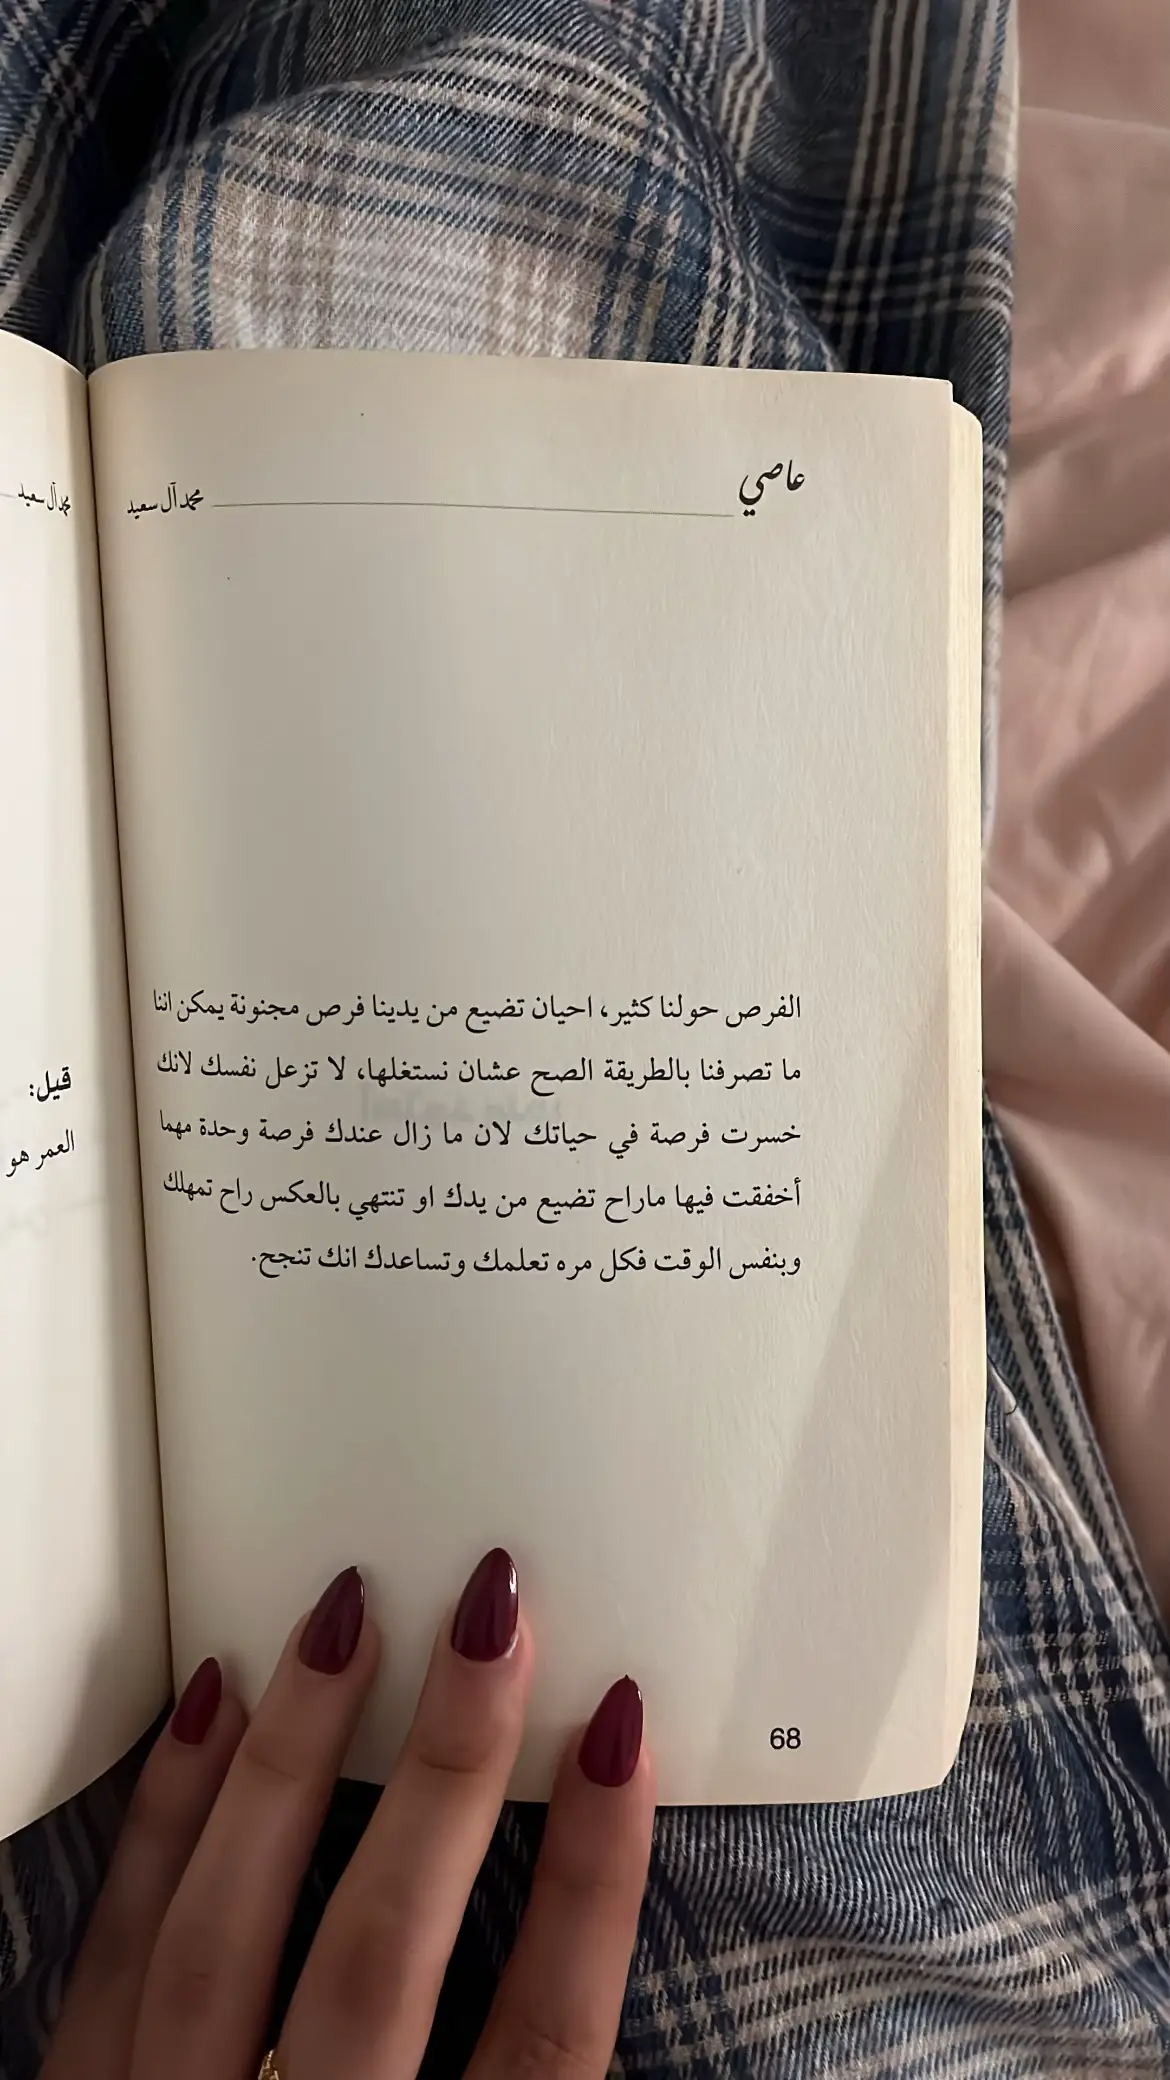 عاصي
محمد آل سعيد
الفرص حولنا كثير، احيان تضيع من يدينا فرص مجنونة يمكن اننا
ما تصرفنا بالطريقة الصح عشان نستغلها، لا تزعل نفسك لانك
خسرت فرصة في حياتك لان ما زال عندك فرصة وحدة مهما
أخفقت فيها ماراح تضيع من يدك او تنتهي بالعكس راح تمهلك
وبنفس الوقت فكل مره تعلمك وتساعدك انك تنجح.
68
محمد آل سعيد
قيل:
العمر هو